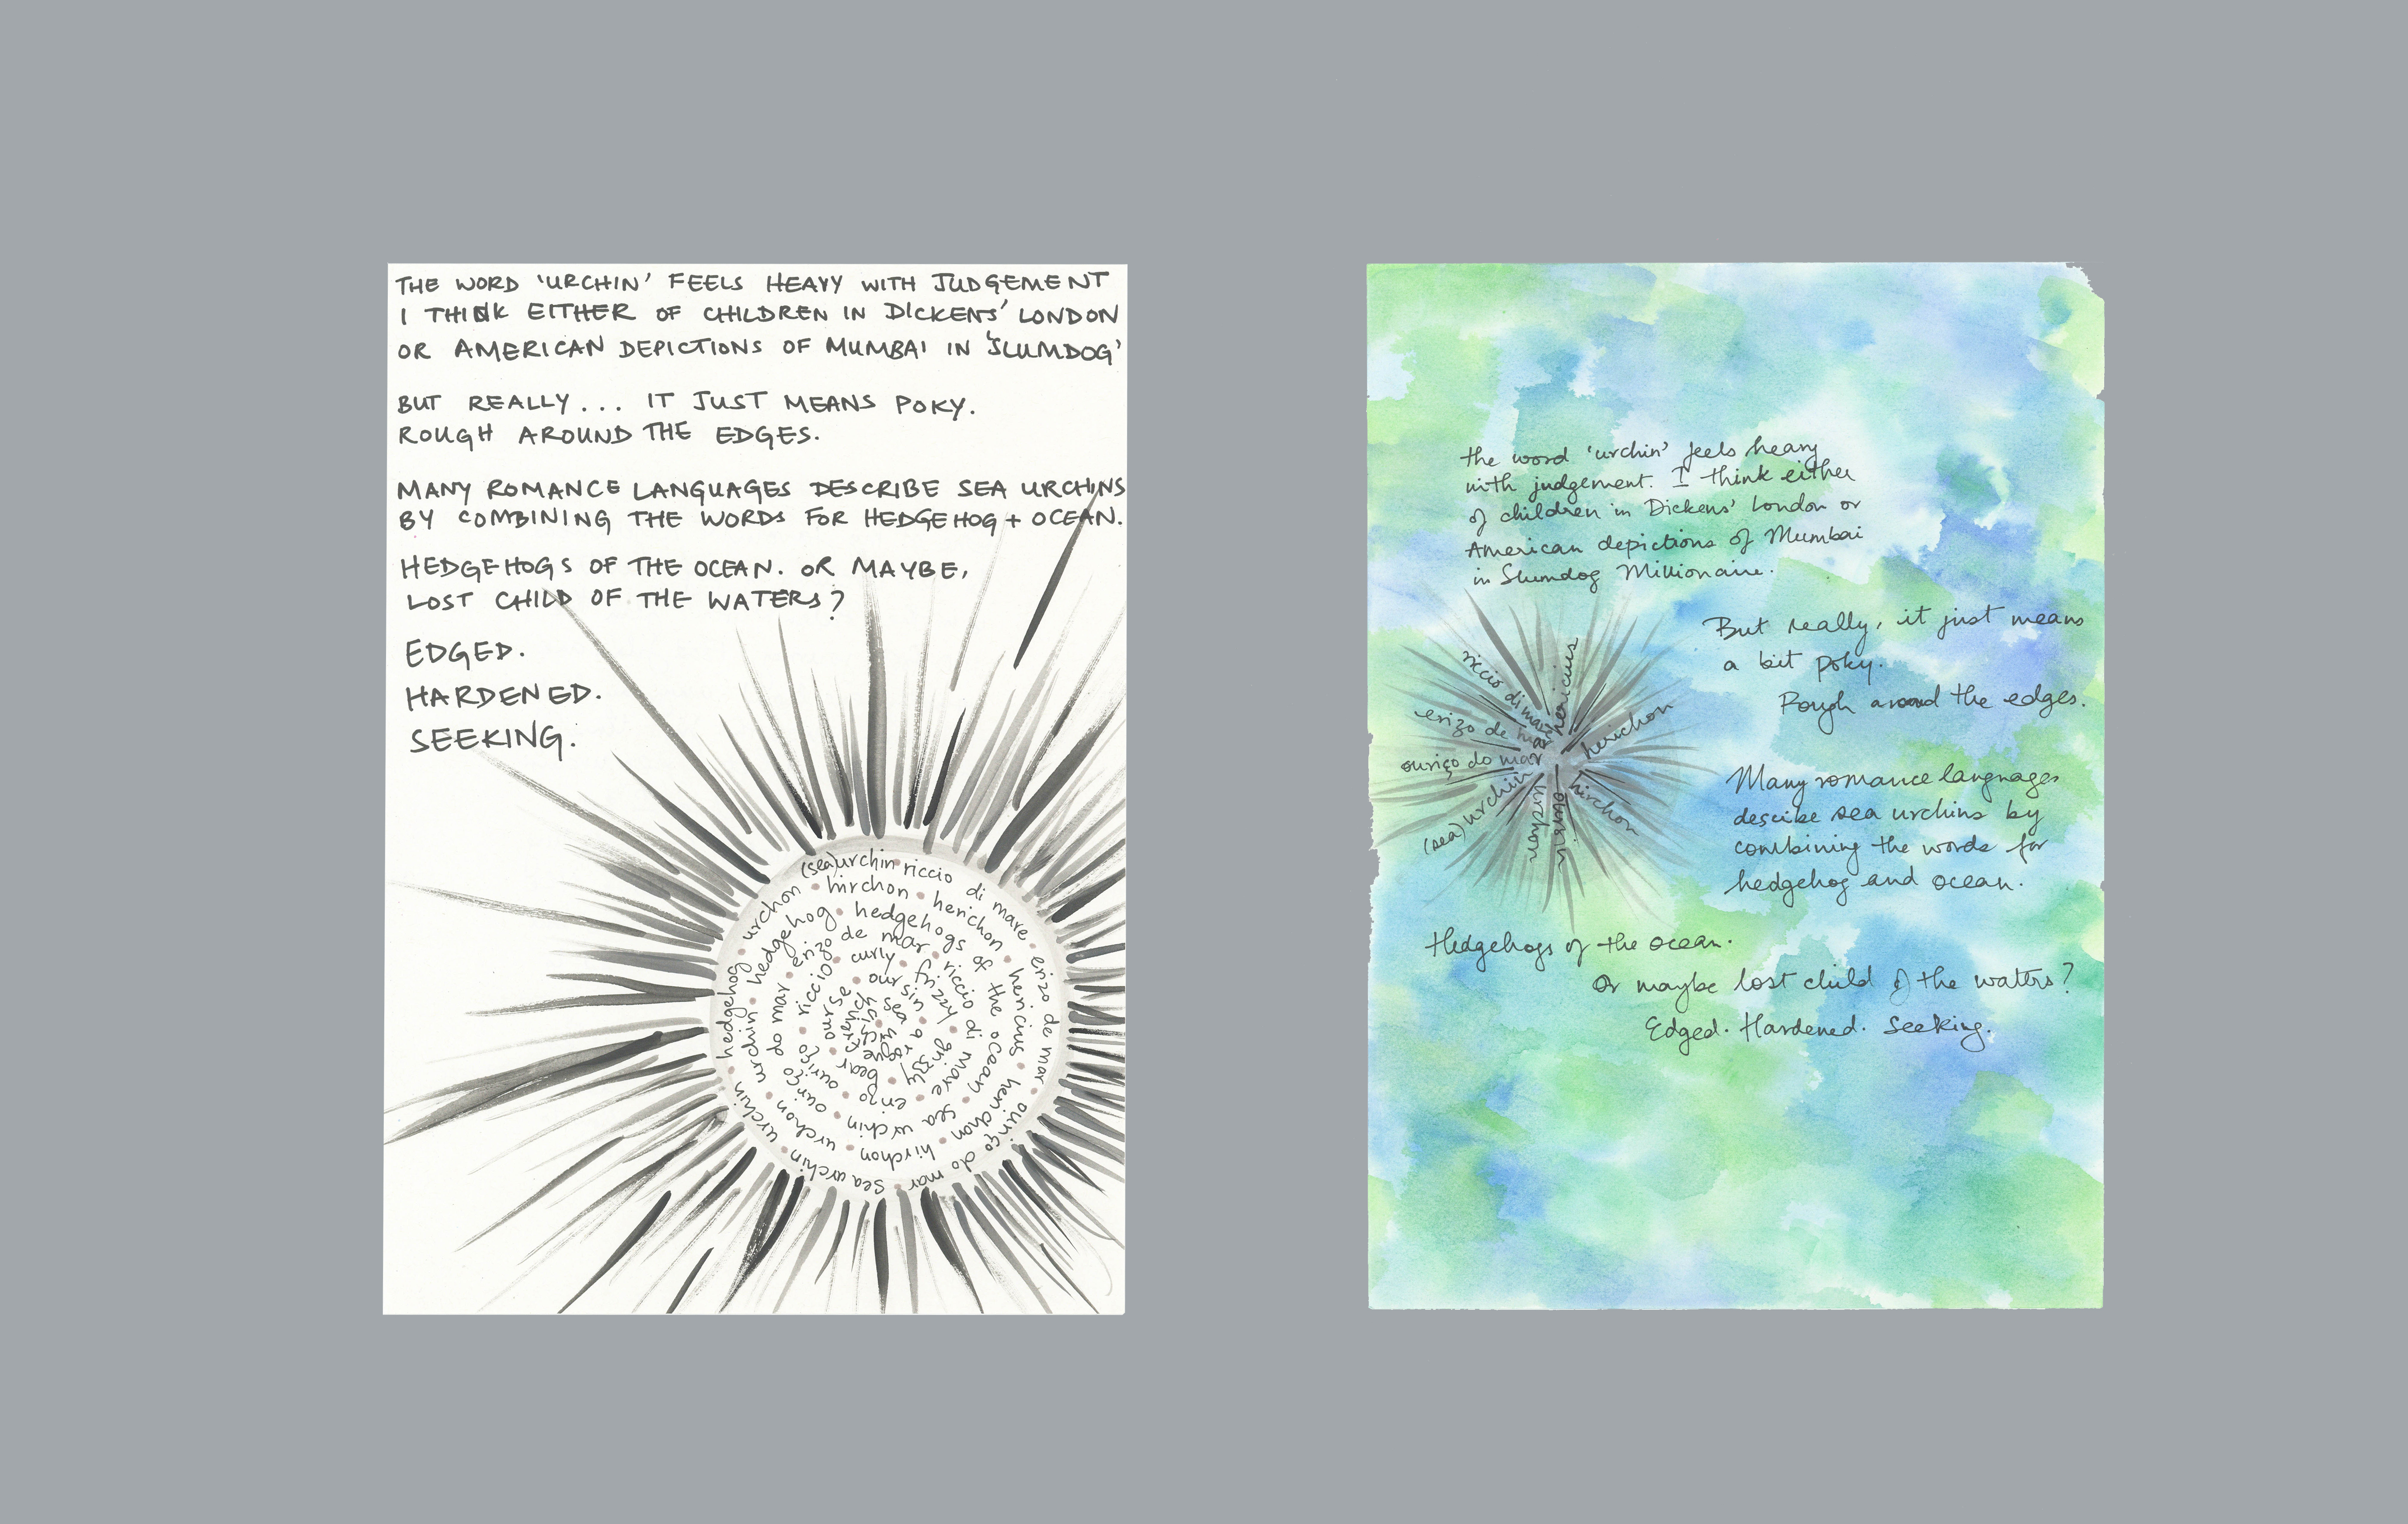 THE WORD 'URCHIN' FEELS HEAVY WITH JUDGEMENT
I THINK EITHER OF CHILDREN IN DICKENS' LONDON
OR AMERICAN DEPICTIONS OF MUMBAI IN 'SLUMDOG'
BUT REALLY... IT JUST MEANS POKY.
ROUGH AROUND THE EDGES.
MANY ROMANCE LANGUAGES DESCRIBE SEA URCHINS
BY COMBINING THE WORDS FOR HEDGEHOG + OCEAN.
HEDGEHOGS OF THE OCEAN. OR MAYBE,
LOST CHILD OF THE WATERS?
EDGED.
HARDENED.
SEEKING.
(sea)urchin riccio di mare • erizo de mar • ouriço do mar • sea urchin • urchin • hedgehog • urchon
• hirchon • herichon • hericius • herichon • hirchon • urchon • urchin • hedgehog
• hedgehogs of the ocean • sea urchin • ouriço do mar • erizo de mar • riccio di mare
• erizo • ouriço • riccio • curly • frizzy • grizzly bear • ourse • oursin • a rogue French sea urchin
the word 'urchin' feels heavy
with judgement. I think either
of children in Dickens' London or
American depictions of Mumbai
in Slumdog Millionaire.
riccio di mare
hericius
erizo de mar
herichon
ouriço do mar
hirchon
(sea) urchin
urchon
oursin
But really, it just means
a bit poky.
Rough around the edges.
Many romance languages
descibe sea urchins by
combining the words for
hedgehog and ocean.
Hedgehogs of the ocean.
Or maybe lost child of the waters?
Edged. Hardened. Seeking.